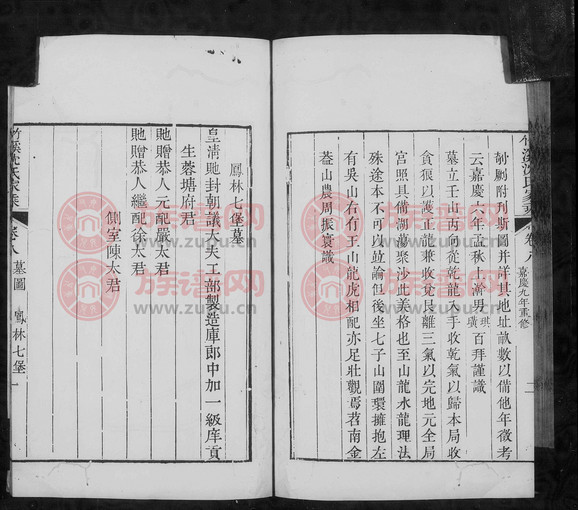 竹溪沈氏家乘 卷八 嘉慶九年重修 二
剞劂附列斯圖并詳其地址畝數以備他年徵考
云嘉慶六年孟秋上澣男琪廣百拜謹識
墓立壬山丙向從乾龍入手收乾氣以歸本局收
貪狼以護正龍兼收兌艮離三氣以完地元全局
宮照具備湖蕩聚沙此美格也至山龍水龍理法
殊途本不可以竝論但後坐七子山圍環擁抱左
有吳山右有王山龍虎相配亦足壯觀焉苕南金
蓋山農周振寰識
鳳林七堡墓
皇清貤封朝議大夫工部製造庫郎中加一級庠貢
生蓉塘府君
貤贈恭人元配嚴太君
貤贈恭人繼配徐太君
側室陳太君
竹溪沈氏家乘 卷八 墓圖 鳳林七堡 一
族谱网
www.zupu.cn
族谱网
www.zupu.cn
族谱网
www.zupu.cn
族谱网
www.zupu.cn